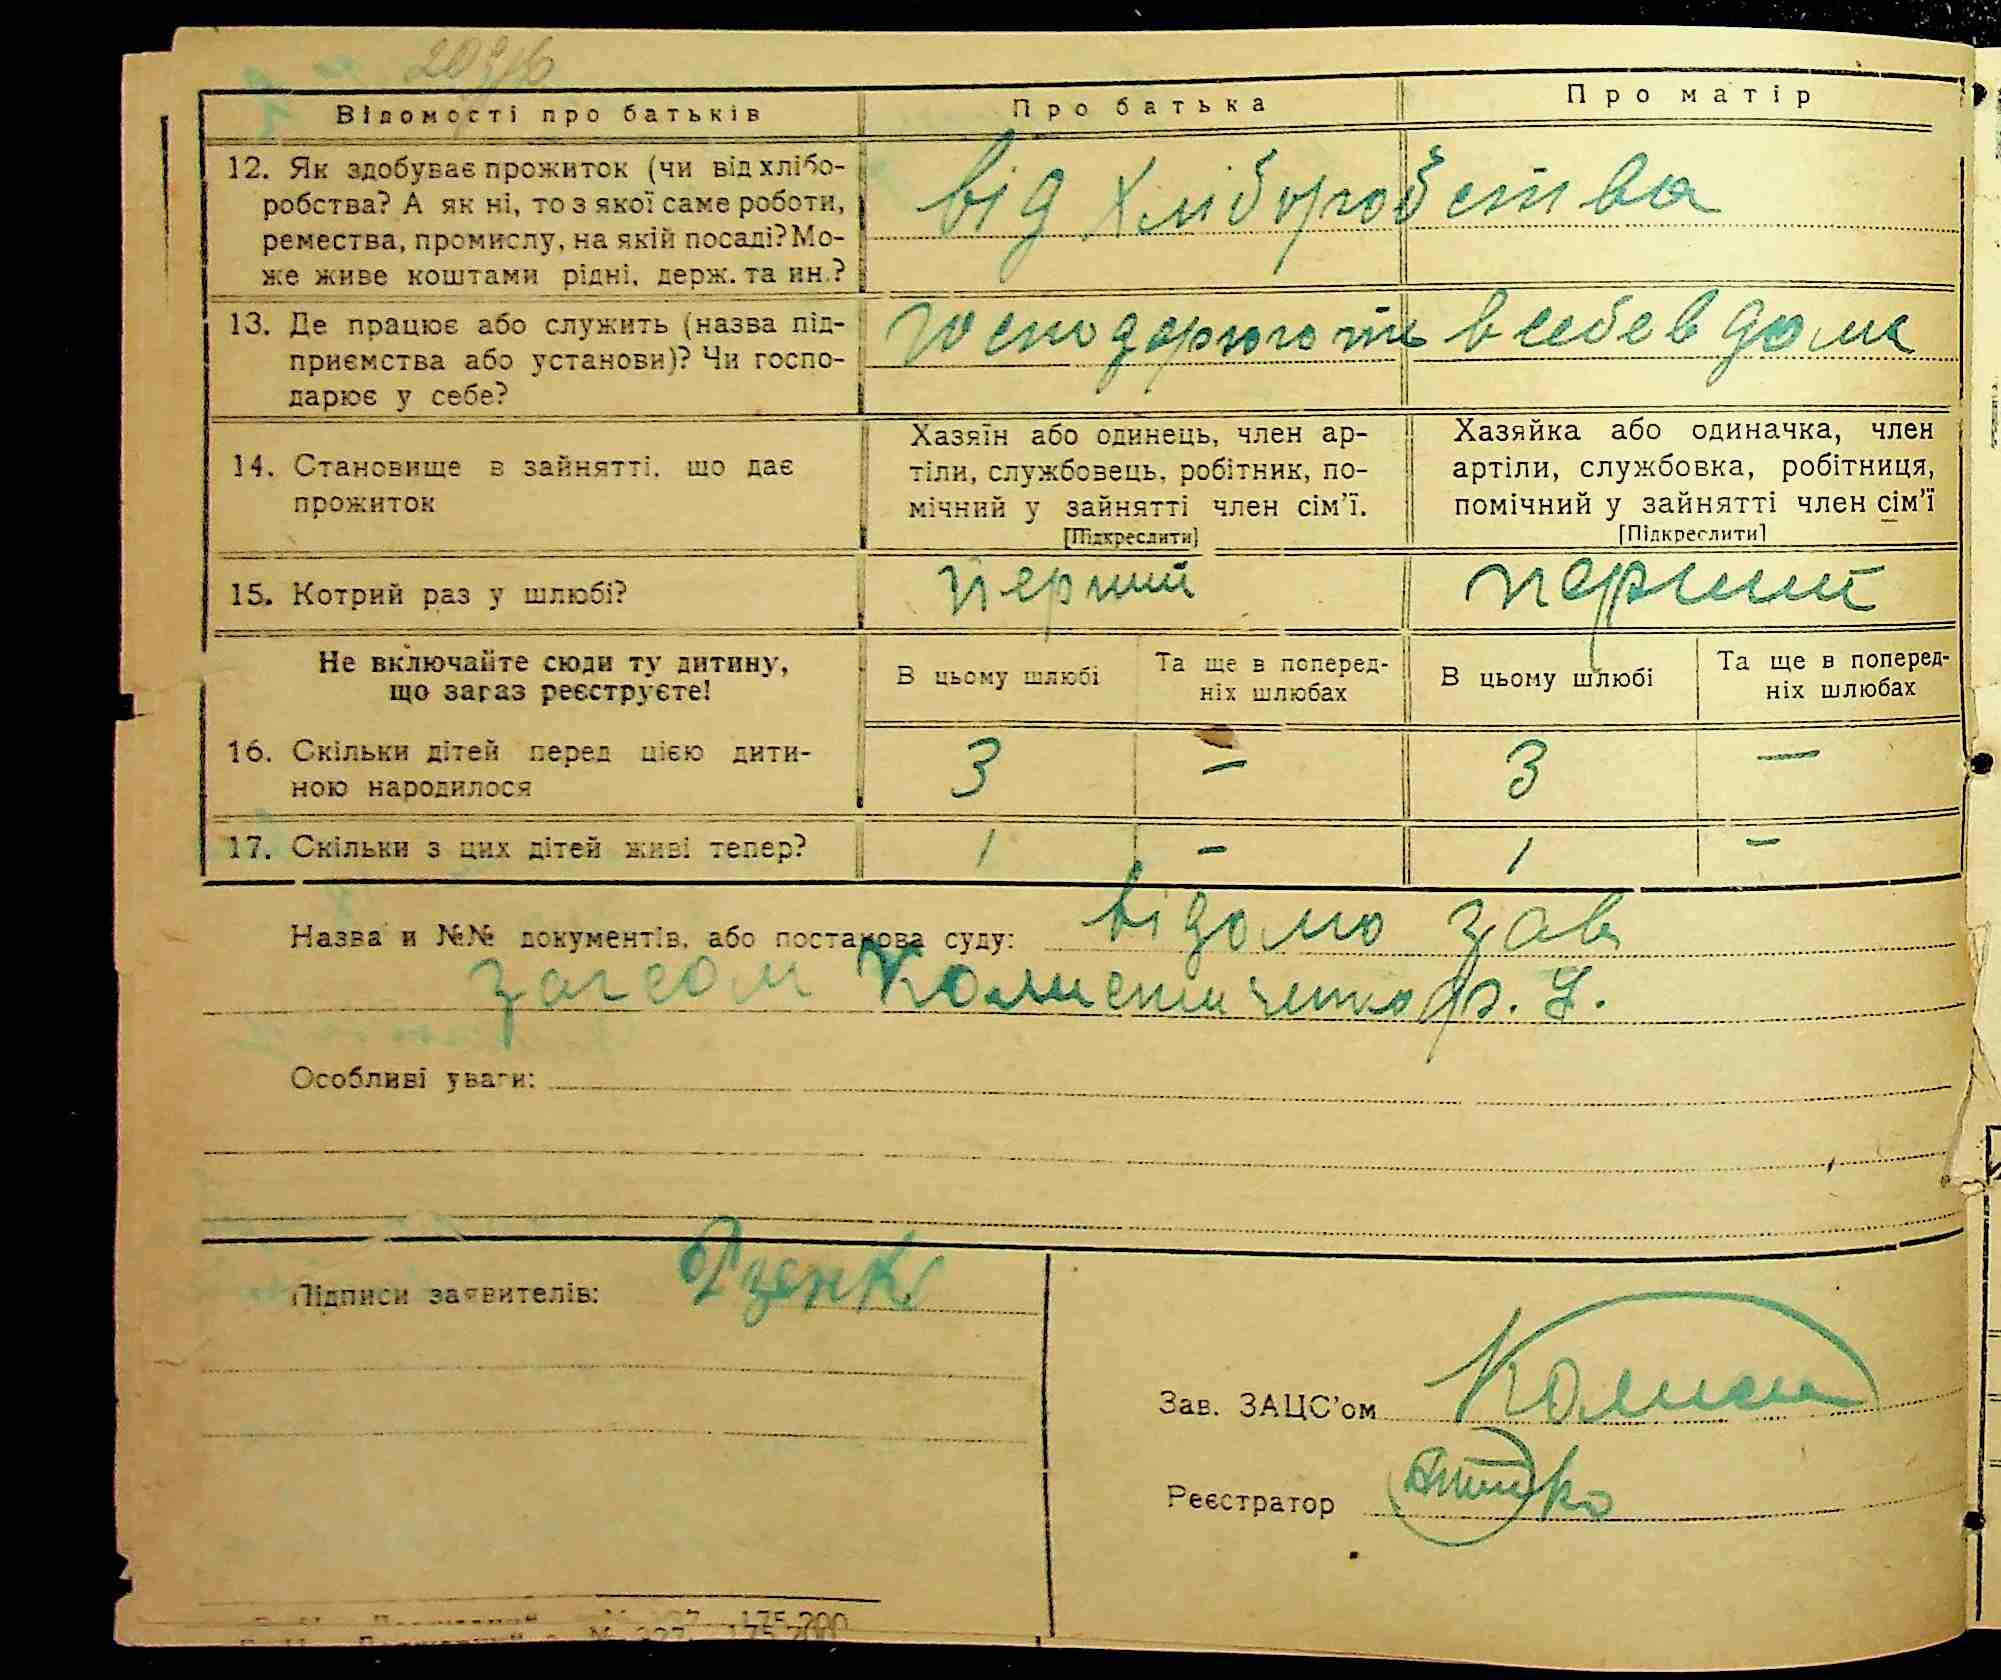 Відомості про батьків
Про батька
Про матір
12. Як здобуває прожиток (чи від хлібо-
робства? А як ні, то з якої саме роботи,
ремества, промислу, на якій посаді? Мо-
же живе коштами рідні, держ. та ин.?
від хліборобства
13. Де працює або служить (назва під-
приємства або установи)? Чи госпо-
дарює у себе?
господорюють в себе в доме
14. Становище в зайнятті, що дає
прожиток
Хазяїн або одинець, член ар-
тіли, службовець, робітник, по-
мічний у зайнятті член сім'ї.
[Підкреслити]
Хазяйка або одиначка, член
артіли, службовка, робітниця,
помічний у зайнятті член сім'ї
[Підкреслити]
15. Котрий раз у шлюбі?
перший
перший
Не включайте сюди ту дитину,
що зараз реєструєте!
В цьому шлюбі
Та ще в поперед-
ніх шлюбах
В цьому шлюбі
Та ще в поперед-
ніх шлюбах
16. Скільки дітей перед цією дити-
ною народилося
3 — 3 —
17. Скільки з цих дітей живі тепер?
1 — 1 —
Назва и №№ документів, або постанова суду: відомо зав
загсом
Особливі уваги:
Підписи заявителів:
Зав. ЗАЦС'ом
Реєстратор
175.200